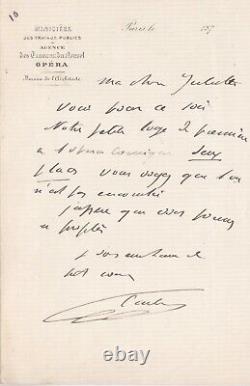 10
MINISTÈRE
DES TRAVAUX PUBLICS
AGENCE
des Travaux du Nouvel
OPÉRA
Bureau de l'Architecte
Paris, le 187
ma chère
Voici pour ce soir
Notre petite loge de première
a l'opera comique
places vous voyez que l'on
n'est pas encombré
j'espère que vous pourrez
en profiter
je vous embrasse de
tout coeur